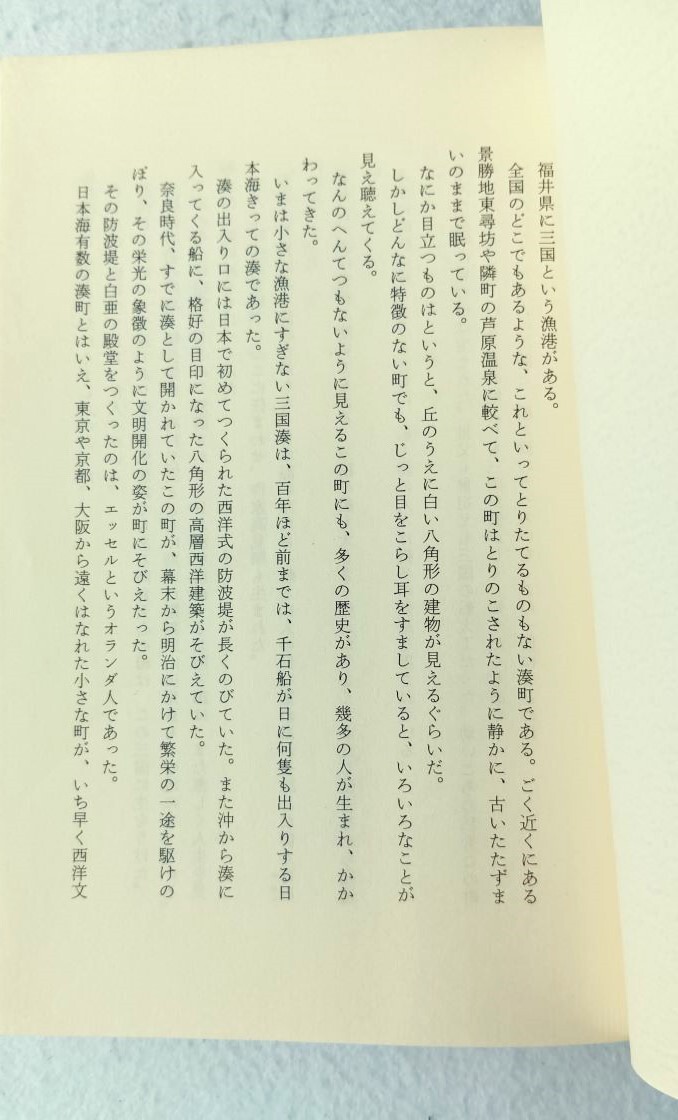 福井県に三国という漁港がある。
全国のどこでもあるような、これといってとりたてるものもない湊町である。ごく近くにある
景勝地東尋坊や隣町の芦原温泉に較べて、この町はとりのこされたように静かに、古いたたずま
いのままで眠っている。
なにか目立つものはというと、丘のうえに白い八角形の建物が見えるぐらいだ。
しかしどんなに特徴のない町でも、じっと目をこらし耳をすましていると、いろいろなことが
見え聴えてくる。
なんのへんてつもないように見えるこの町にも、多くの歴史があり、幾多の人が生まれ、かか
わってきた。
いまは小さな漁港にすぎない三国湊は、百年ほど前までは、千石船が日に何隻も出入りする日
本海きっての湊であった。
湊の出入り口には日本で初めてつくられた西洋式の防波堤が長くのびていた。また沖から湊に
入ってくる船に、格好の目印になった八角形の高層西洋建築がそびえていた。
奈良時代、すでに湊として開かれていたこの町が、幕末から明治にかけて繁栄の一途を駆けの
ぼり、その栄光の象徴のように文明開化の姿が町にそびえたった。
その防波堤と白亜の殿堂をつくったのは、エッセルというオランダ人であった。
日本海有数の湊町とはいえ、東京や京都、大阪から遠くはなれた小さな町が、いち早く西洋文